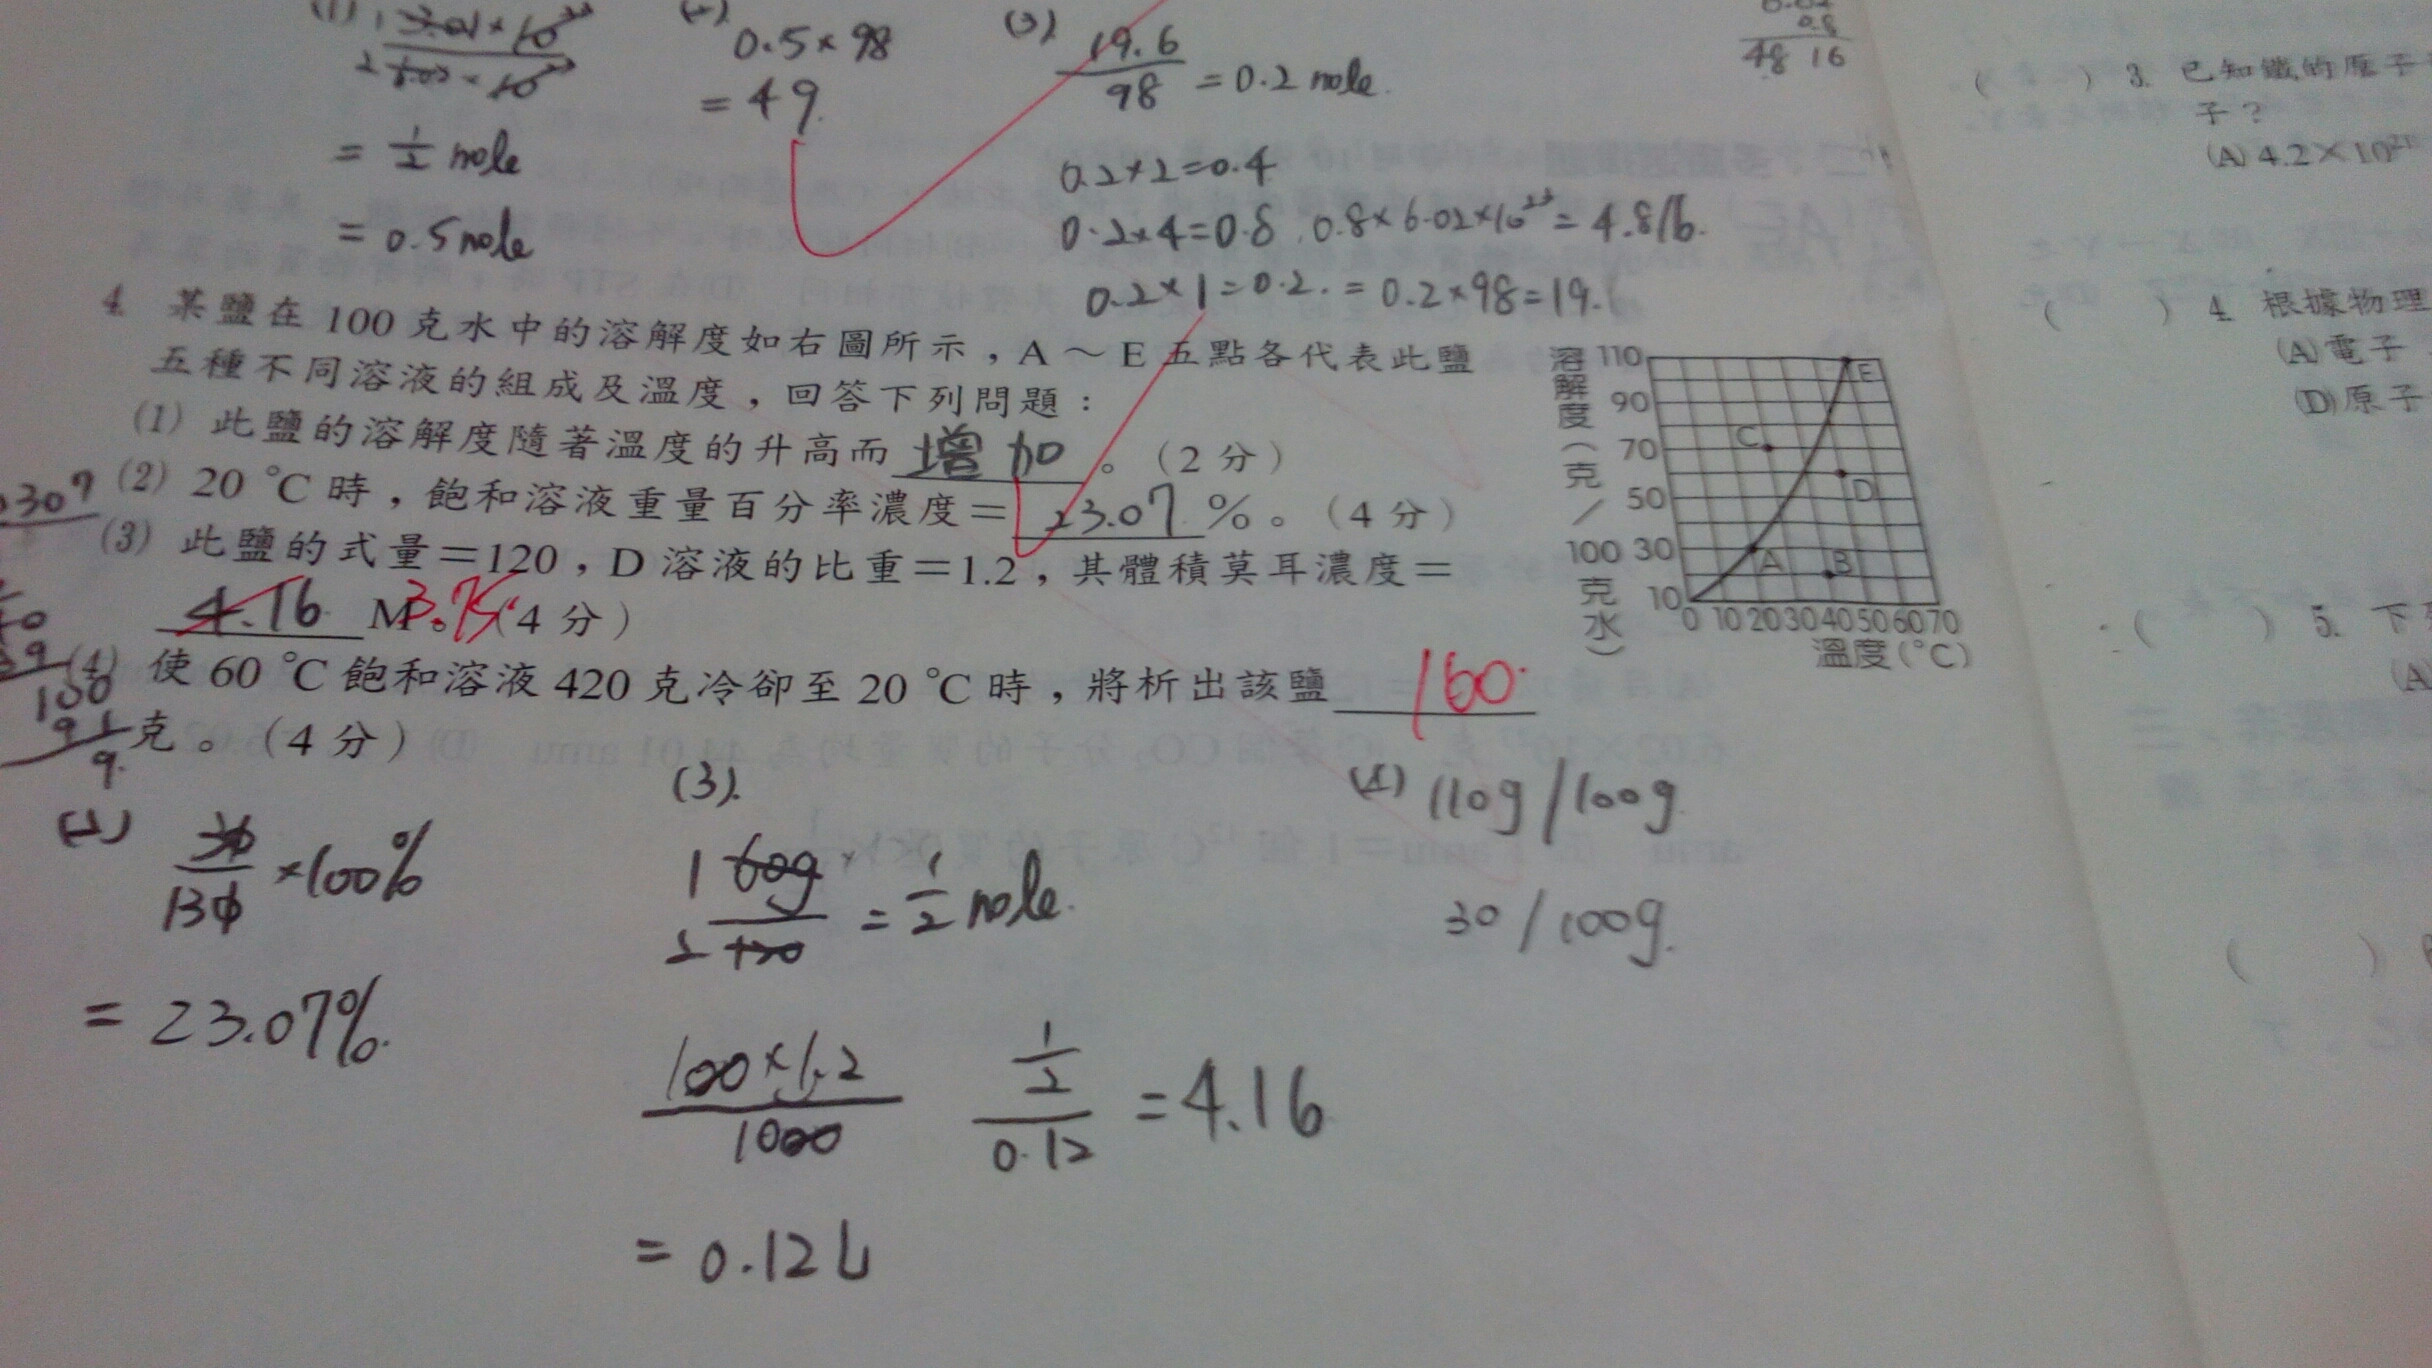 (1) 1 3.01×10²³
2 6.02×10²³
= 1/2 mole
= 0.5 mole
0.5×98
= 49
(3) 19.6
98 = 0.2 mole.
0.2×2=0.4
0.2×4=0.8 . 0.8×6.02×10²³= 4.816.
0.2×1=0.2. = 0.2×98=19.
0.8
48 16
4. 某鹽在 100 克水中的溶解度如右圖所示，A～E 五點各代表此鹽
五種不同溶液的組成及溫度，回答下列問題：
(1) 此鹽的溶解度隨著溫度的升高而 增加 。（2 分）
(2) 20 °C 時，飽和溶液重量百分率濃度＝ 23.07 %。（4 分）
(3) 此鹽的式量＝120，D 溶液的比重＝1.2，其體積莫耳濃度＝
4.16 M。3.75（4 分）
(4) 使 60 °C 飽和溶液 420 克冷卻至 20 °C 時，將析出該鹽 160.
克。（4 分）
溶解度（克／100克水）
110
90
70
50
30
10
0 10 20 30 40 50 60 70
溫度(°C)
E
C
D
A
B
100
91
9.
30
130 ×100%
= 23.07%.
(3).
1 60g
2 120 = 1/2 mole.
100×1.2
1000
= 0.12 L
1/2
0.12 = 4.16
(4) 110g/100g.
30/100g.
( ) 3. 已知鐵的原子
子？
(A) 4.2×10
( ) 4. 根據物理
(A) 電子
(D) 原子
( ) 5. 下
(A
( )